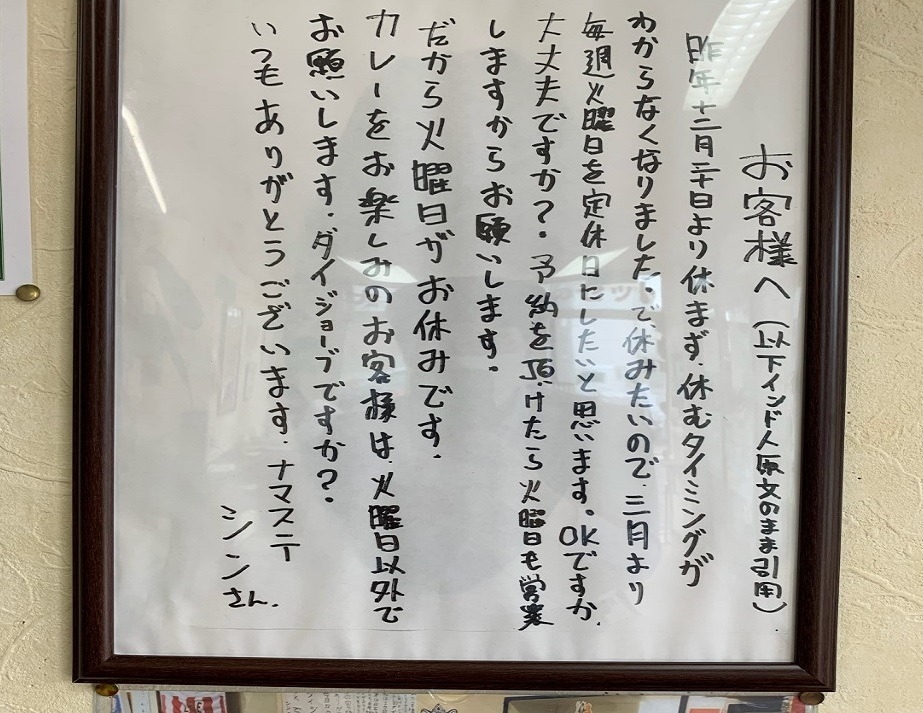 お客様へ（以下インド人原文のまま引用）
昨年十二月二十日より休まず、休むタイミングが
わからなくなりました。で、休みたいので、三月より
毎週火曜日を定休日にしたいと思います。OKですか、
大丈夫ですか？、予約を頂けたら火曜日も営業
しますからお願いします。
だから火曜日がお休みです。
カレーをお楽しみのお客様は、火曜日以外で
お願いします、ダイジョーブですか？。
いつもありがとうございます、ナマステ
シンさん。